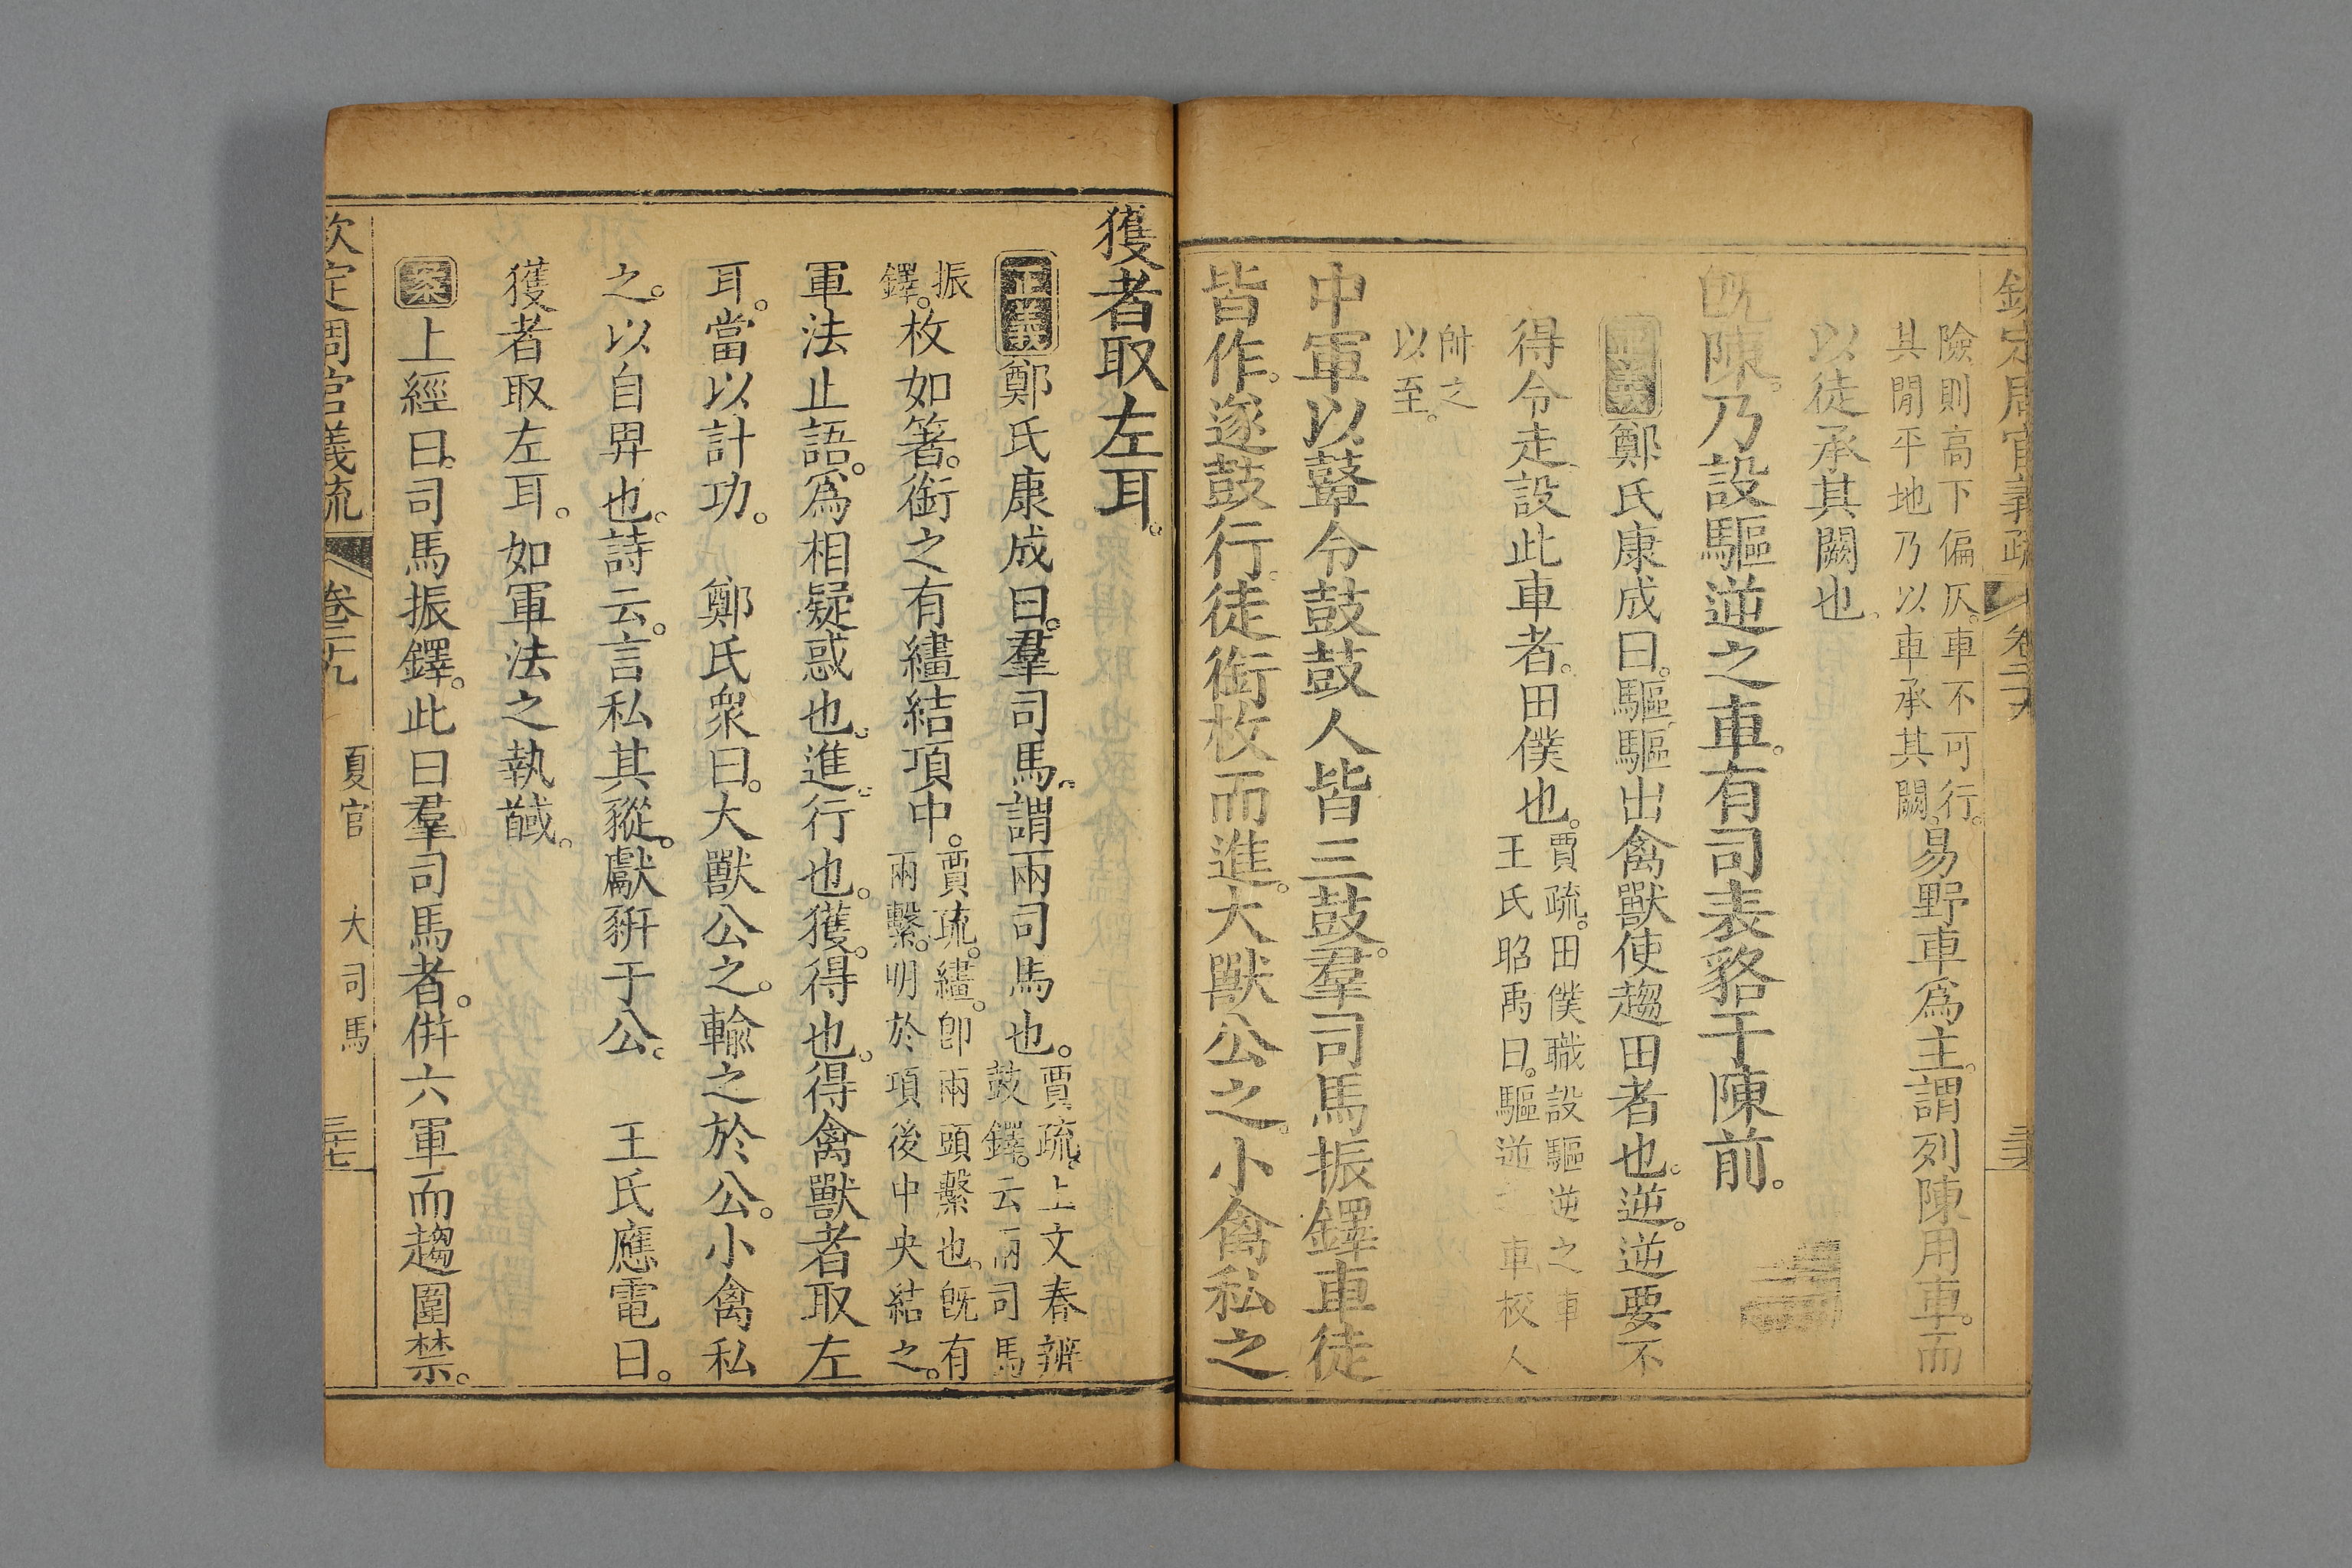 欽定周官義疏 卷二十九
險則高下偏仄。車不可行。
其閒平地乃以車承其闕。易野車爲主。謂列陳用車。而
以徒承其闕也。
旣陳。乃設驅逆之車。有司表貉于陳前。
正義鄭氏康成曰。驅。驅出禽獸使趨田者也。逆。逆要不
得令走。設此車者。田僕也。賈疏。田僕職設驅逆之車
王氏昭禹曰。驅逆 車校人
帥之
以至。
中軍以鼙令鼓鼓人皆三鼓。羣司馬振鐸車徒
皆作。遂鼓行。徒銜枚而進。大獸公之。小禽私之
獲者取左耳。
正義鄭氏康成曰。羣司馬。謂兩司馬也。賈疏。上文春辨
鼓鐸。云兩司馬
振
鐸。枚如箸。銜之有繣結項中。賈疏。繣。卽兩頭繫也。旣有
兩繫。明於項後中央結之。
軍法止語。爲相疑惑也。進。行也。獲。得也。得禽獸者取左
耳。當以計功。 鄭氏衆曰。大獸公之。輸之於公。小禽私
之。以自畀也。詩云。言私其豵。獻豜于公。 王氏應電曰。
獲者取左耳。如軍法之執馘。
案上經曰。司馬振鐸。此曰羣司馬者。併六軍而趨圍禁。
欽定周官義疏 卷二十九 夏官 大司馬 三十七